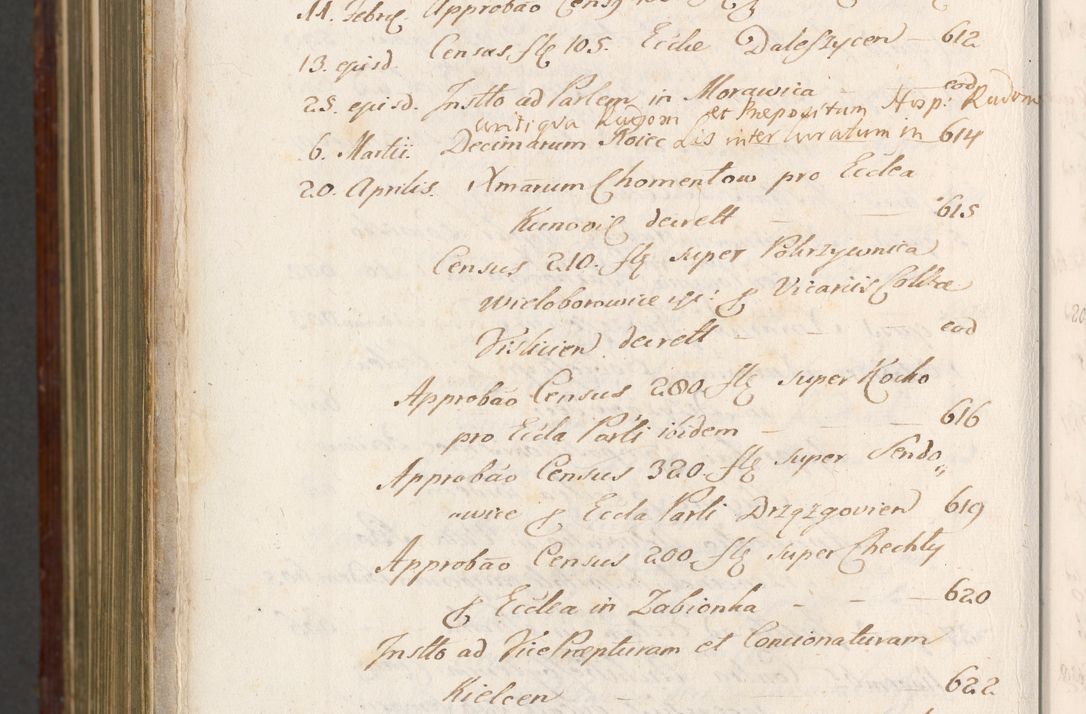 11. Febr. Approbao Censy
13. ejusd. Census flg 105. Ecclae Daleszycen — 612
23. ejusd. Instto ad Parlem in Morawica — eod
antiqva Radom et Præpositum Hosp: Radom
6. Martii. Decimarum Noice Lis inter curatum in 614
20. Aprilis. Xmarum Chomentow pro Ecclea
Kunovic decrett — — 615
Census 210. flg super Pokrzywnica
Wieloborowice &: & Vicariis Collæ
Vislicien decrett — — eod
Approbao Census 280. flg super Kocko
pro Eccla Parli ibidem — — — 616
Approbao Census 320. flg super Sendo„
„wice & Eccla Parli Drzązgovien 619
Approbao Census 200. flg super Chechły
& Ecclea in Zabionka — — — 620
Instto ad VicePræpturam et Concionaturam
Kielcen — — — 622